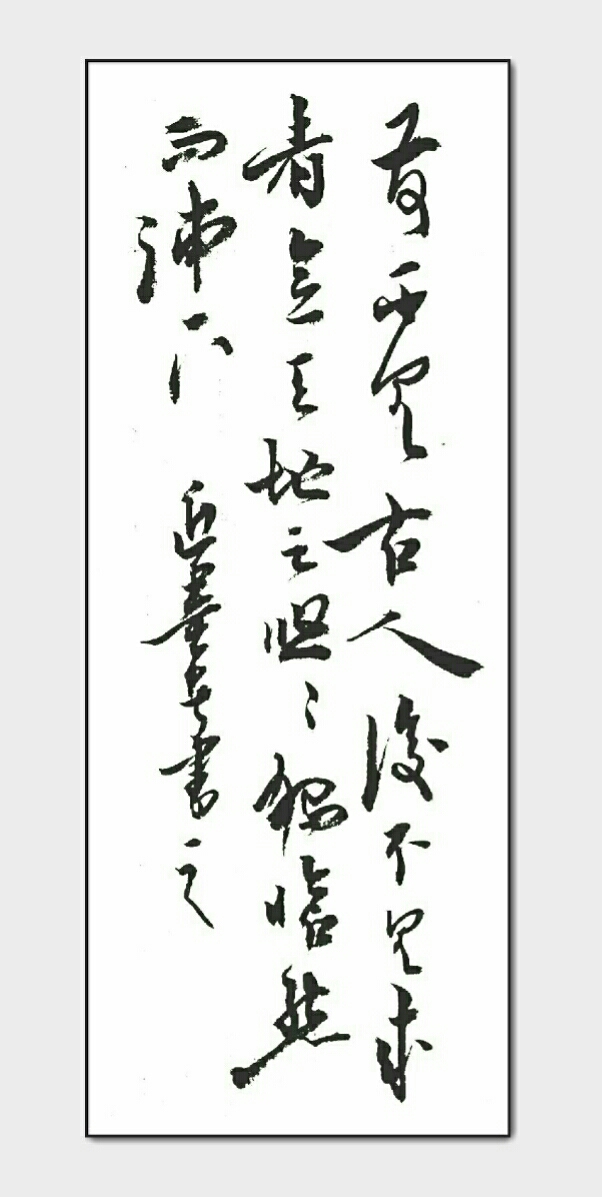 前不見古人後不見來
者念天地之悠〻獨愴然
而涕下 書之